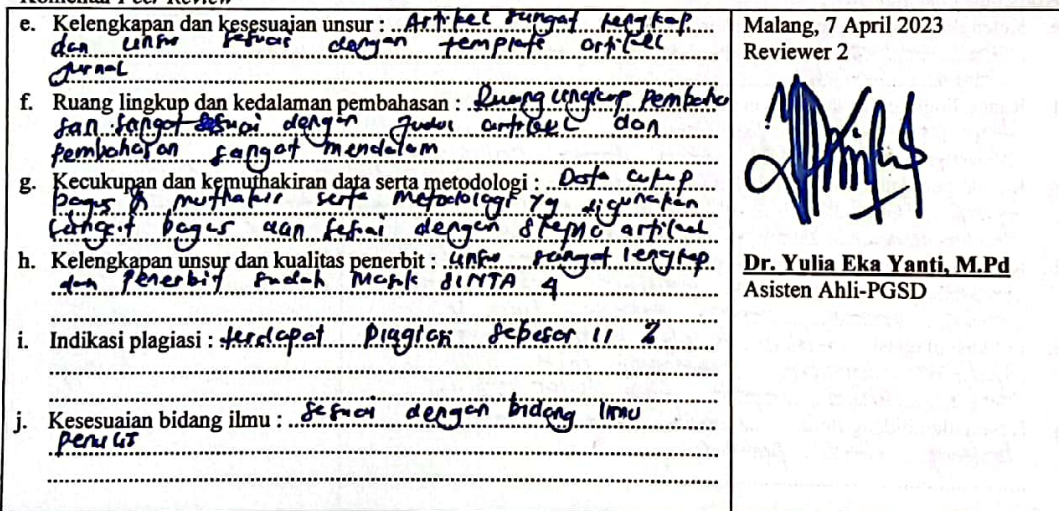 Komentar Peer Review
e. Kelengkapan dan kesesuaian unsur : Artikel sangat lengkap
dan unsur sesuai dengan template artikel
jurnal
f. Ruang lingkup dan kedalaman pembahasan : Ruang lingkup pembaha
san sangat sesuai dengan judul artikel dan
pembahasan sangat mendalam
g. Kecukupan dan kemuthakiran data serta metodologi : Data cukup
bagus & muthakir serta metodologi yg digunakan
sangat bagus dan sesuai dengan artikel
h. Kelengkapan unsur dan kualitas penerbit : unsur sangat lengkap
dan Penerbit sudah Masuk SINTA 4
i. Indikasi plagiasi : terdapat Plagiasi Sebesar 11 %
j. Kesesuaian bidang ilmu : Sesuai dengan bidang Ilmu
Penulis
Malang, 7 April 2023
Reviewer 2
Dr. Yulia Eka Yanti, M.Pd
Asisten Ahli-PGSD